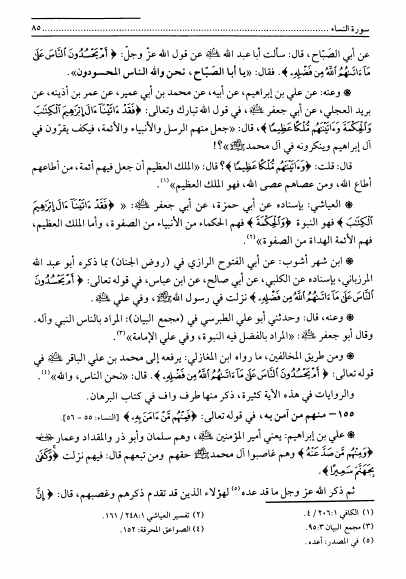 سورة النساء ........ ٨٥
عن أبي الصبّاح، قال: سألت أبا عبد الله عليه السلام عن قول الله عزّ وجلّ: ﴿ أَمْ يَحْسُدُونَ النَّاسَ عَلَى
مَا ءَاتَاهُمُ اللَّهُ مِن فَضْلِهِ ﴾. فقال: «يا أبا الصبّاح، نحن والله الناس المحسودون».
❋ وعنه: عن علي بن إبراهيم، عن أبيه، عن محمد بن أبي عمير، عن عمر بن أذينة، عن
بريد العجلي، عن أبي جعفر عليه السلام، في قول الله تبارك وتعالى: ﴿ فَقَدْ ءَاتَيْنَا ءَالَ إِبْرَاهِيمَ الْكِتَابَ
وَالْحِكْمَةَ وَءَاتَيْنَاهُم مُّلْكًا عَظِيمًا ﴾، قال: «جعل منهم الرسل والأنبياء والأئمة، فكيف يقرّون في
آل إبراهيم وينكرونه في آل محمد ﷺ»؟!
قال: قلت: ﴿ وَءَاتَيْنَاهُم مُّلْكًا عَظِيمًا ﴾؟ قال: «الملك العظيم أن جعل فيهم أئمة، من أطاعهم
أطاع الله، ومن عصاهم عصى الله، فهو الملك العظيم»(١).
❋ العياشي: بإسناده عن أبي حمزة، عن أبي جعفر عليه السلام: « ﴿ فَقَدْ ءَاتَيْنَا ءَالَ إِبْرَاهِيمَ
الْكِتَابَ ﴾ فهو النبوة ﴿ وَالْحِكْمَةَ ﴾ فهم الحكماء من الأنبياء من الصفوة، وأما الملك العظيم،
فهم الأئمة الهداة من الصفوة»(٢).
❋ ابن شهر آشوب: عن أبي الفتوح الرازي في (روض الجنان) بما ذكره أبو عبد الله
المرزباني، بإسناده عن الكلبي، عن أبي صالح، عن ابن عباس، في قوله تعالى: ﴿ أَمْ يَحْسُدُونَ
النَّاسَ عَلَى مَا ءَاتَاهُمُ اللَّهُ مِن فَضْلِهِ ﴾ نزلت في رسول الله ﷺ، وفي علي عليه السلام.
❋ وعنه، قال: وحدثني أبو علي الطبرسي في (مجمع البيان): المراد بالناس النبي وآله.
وقال أبو جعفر عليه السلام: «المراد بالفضل فيه النبوة، وفي علي الإمامة»(٣).
❋ ومن طريق المخالفين، ما رواه ابن المغازلي: يرفعه إلى محمد بن علي الباقر عليه السلام في
قوله تعالى: ﴿ أَمْ يَحْسُدُونَ النَّاسَ عَلَى مَا ءَاتَاهُمُ اللَّهُ مِن فَضْلِهِ ﴾. قال: «نحن الناس، والله»(٤).
والروايات في هذه الآية كثيرة، ذكر منها طرف واف في كتاب البرهان.
١٥٥ – منهم من آمن به، في قوله تعالى: ﴿ فَمِنْهُم مَّنْ ءَامَنَ بِهِ ﴾ [النساء: ٥٥ – ٥٦].
❋ علي بن إبراهيم: يعني أمير المؤمنين عليه السلام، وهم سلمان وأبو ذر والمقداد وعمار
﴿ وَمِنْهُم مَّن صَدَّ عَنْهُ ﴾ وهم غاصبوا آل محمد ﷺ حقهم ومن تبعهم قال: فيهم نزلت ﴿ وَكَفَى
بِجَهَنَّمَ سَعِيرًا ﴾.
ثم ذكر الله عز وجل ما قد عده(٥) لهؤلاء الذين قد تقدم ذكرهم وغصبهم، قال: ﴿ إِنَّ
(١) الكافي ١: ٢٠٦ / ٤.
(٢) تفسير العياشي ١: ٢٤٨ / ١٦١.
(٣) مجمع البيان ٣: ٩٥.
(٤) الصواعق المحرقة: ١٥٢.
(٥) في المصدر: أعده.